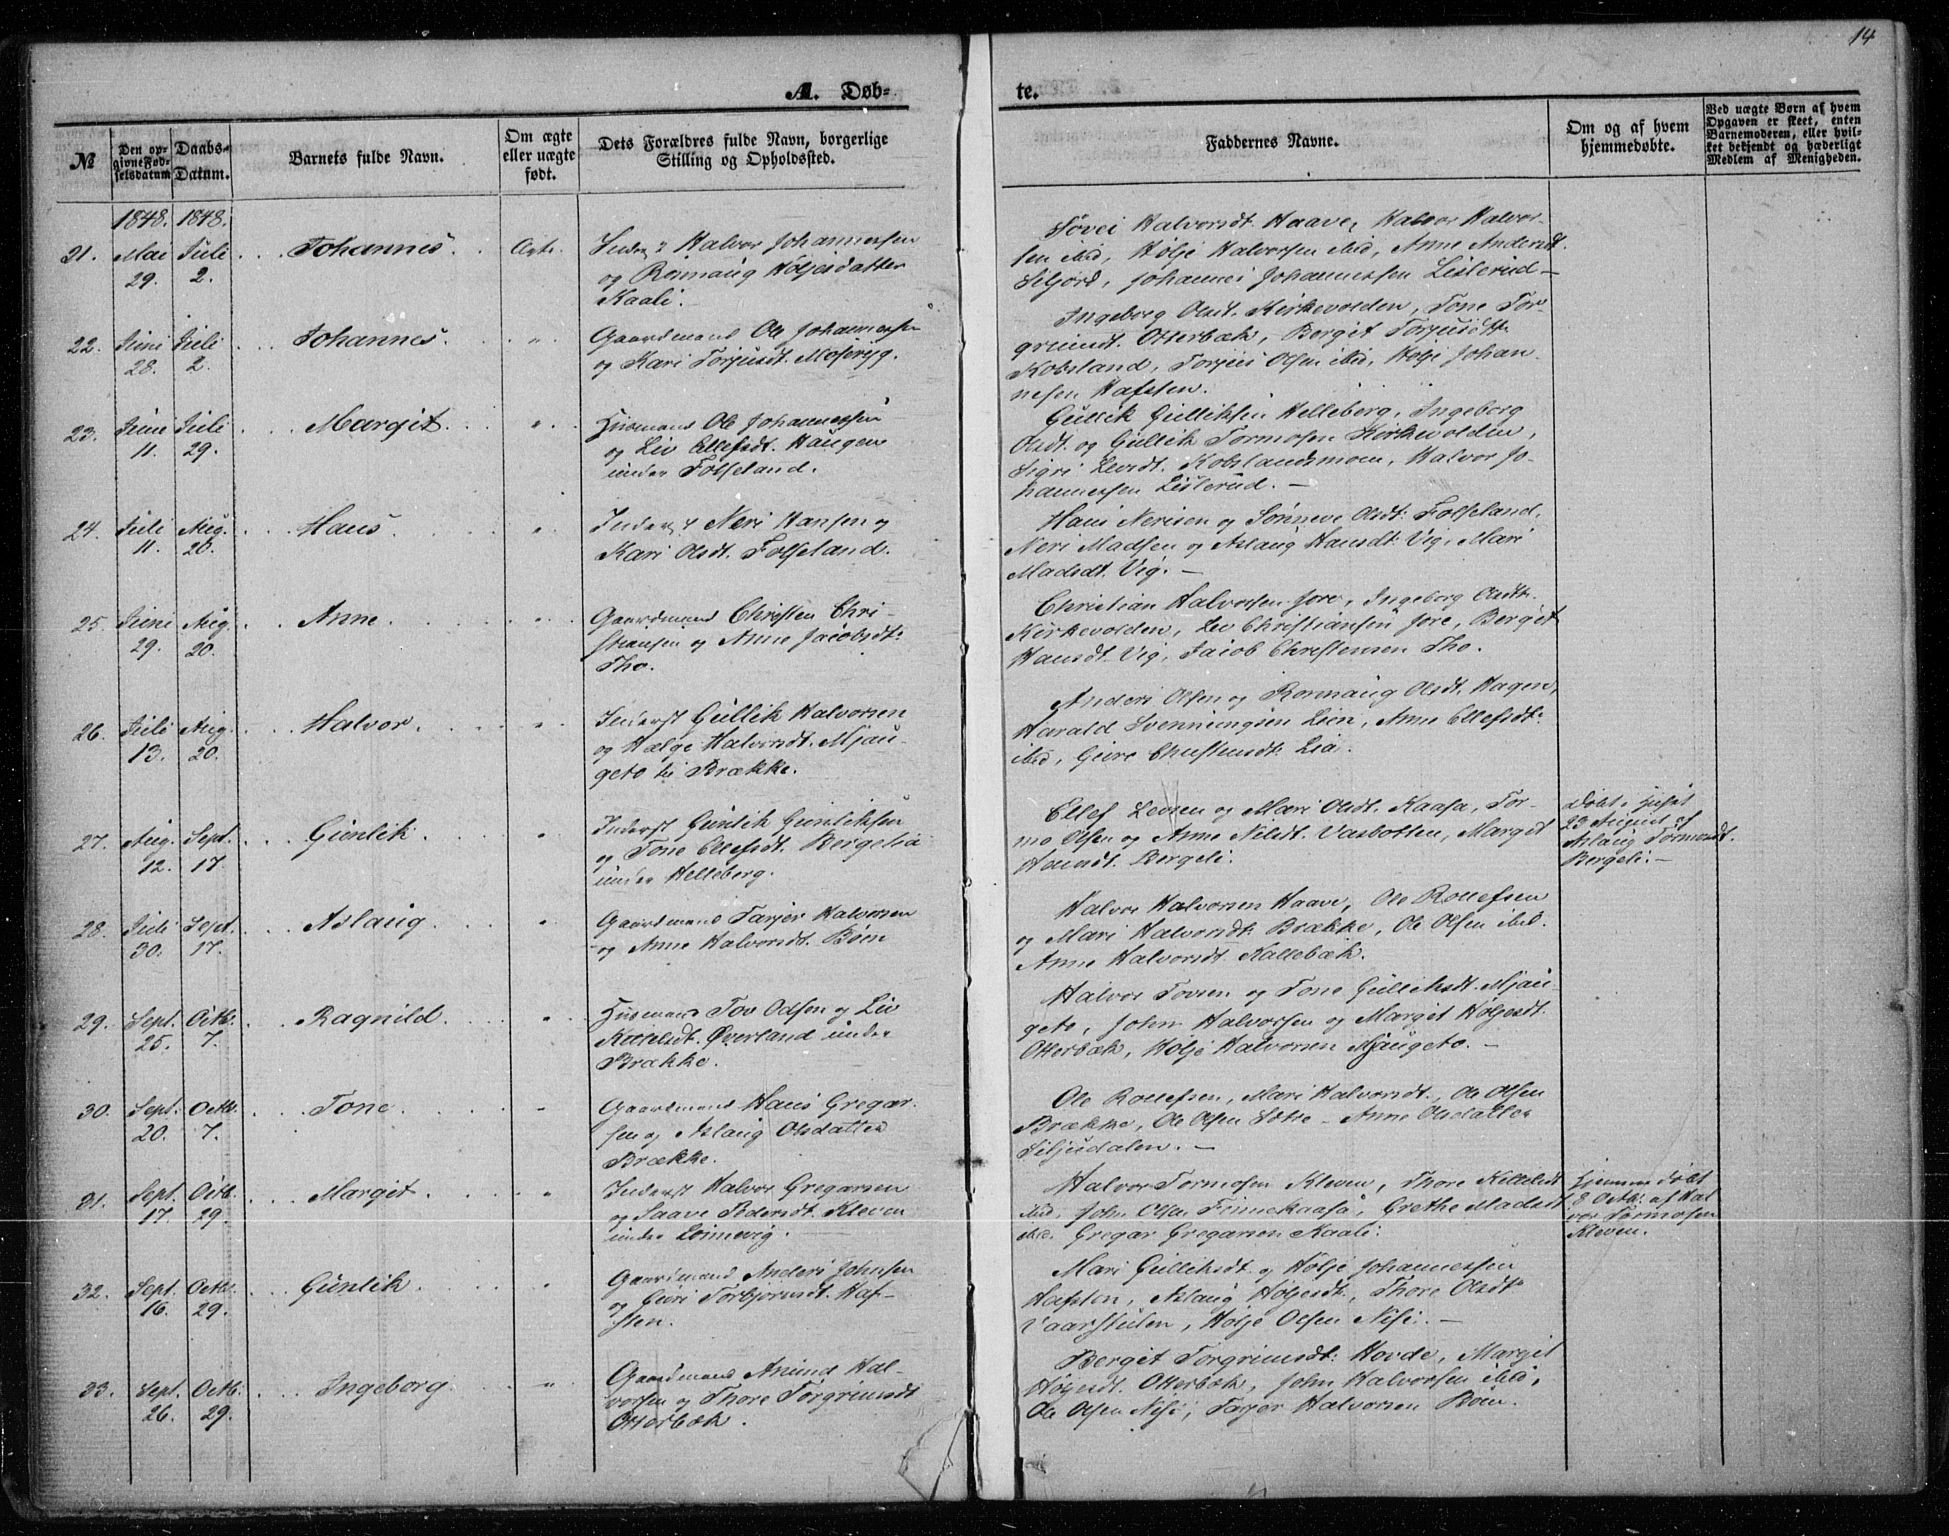 14
A. Døb-
te.
№
Den op-
givne Fød-
selsdatum
Daabs-
Datum.
Barnets fulde Navn.
Om ægte
eller uægte
født.
Dets Forældres fulde Navn, borgerlige
Stilling og Opholdssted.
Faddernes Navne.
Om og af hvem
hjemmedøbte.
Ved uægte Børn af hvem
Opgaven er skeet, enten
Barnemoderen, eller hvil-
ket bekjendt og hæderligt
Medlem af Menigheden.
1848. 1848.
21. Mai 29. Juli 2. Johannes. Ægte.
Halvor Johannessen
og Rønnaug Høljesdatter
Kaali.
Søvei Halvorsdt. Haave, Halvor Halvor-
sen ibid, Hølje Halvorsen ibid, Anne Andersdt.
Siljord, Johannes Johannessen Lislerud —
22. Juni 28. Juli 2. Johannes. "
Gaardmand Ole Johannessen
og Kari Torjusdt. Mosebyg.
Ingeborg Olsdt. Kirkevolden, Tone Tor-
grimdt. Otterbæk, Bergit Torjusdt.
Kobsland, Torjus Olsen ibid, Hølje Johan-
nesen Hafsten.
23. Juni 11. Juli 29. Margit. "
Husmand Ole Johannessen
og Liv Ellefsdt. Haugen
under Folseland.
Gullik Gulliksen Helleberg, Ingeborg
Olsdt. og Gullik Tormosen Kirkevolden,
Sigri Levsdt. Kobslandsmoen, Halvor Jo-
hannessen Lislerud. —
24. Juli 11. Aug. 20. Hans. "
Inderst Neri Hansen og
Kari Olsdt. Folseland.
Hans Nerisen og Sønneve Olsdt. Folseland,
Neri Madsen og Aslaug Hansdt. Vig, Mari
Madsdt. Vig. —
25. Juni 29. Aug. 20. Anne. "
Gaardmand Christen Chri-
stiansen og Anne Jacobsdt:
Tho.
Christian Halvorsen Jore, Ingeborg Olsdt.
Kirkevolden, Lev Christiansen Jore, Bergit
Hansdt. Vig, Jacob Christensen Tho.
26. Juli 13. Aug. 20. Halvor. "
Inderst Gullik Halvorsen
og Hælge Halvorsdt. Mjau-
geto til Brække.
Anders Olsen og Rønnaug Olsdt. Hagen,
Harald Svenningsen Lien, Anne Ellefsdt:
ibid, Geire Christensdt: Lia.
27. Aug. 12. Sept. 17. Gunlik. "
Inderst Gunlik Gunliksen
og Tone Ellefsdt. Bergelia
under Helleberg.
Ellef Levsen og Mari Olsdt. Kaasa, Tor-
mo Olsen og Anne Nilsdt. Vasbotten, Marget
Hansdt. Bergeli.
Døbt i Huset
23 August af
Aslaug Tormosdt.
Bergeli. —
28. Juli 30. Sept. 17. Aslaug. "
Gaardmand Tarjer Halvorsen
og Anne Halvorsdt. Bøen
Halvor Halvorsen Haave, Ole Rollefsen
og Mari Halvorsdt. Brække, Ole Olsen ibid.
Anne Halvorsdt. Kallebæk.
29. Sept. 25. Octb. 7. Ragnild. "
Husmand Tov Odsen og Liv
Kittelsdt. Øverland under
Brække.
Halvor Tovsen og Tone Gulliksdt. Mjau-
geto, John Halvorsen og Margit Høljesdt.
Otterbæk, Hølje Halvorsen Mjaugeto. —
30. Sept. 20. Octb. 7. Tone. "
Gaardmand Hans Gregar-
sen og Aslaug Olsdatter
Brække.
Ole Rollefsen, Mari Halvorsdt., Ole Olsen
Brække, Ole Olsen — Anne Olsdatter
Siljudalen. —
31. Sept. 17. Octb. 29. Margit. "
Inderst Halvor Gregarsen
og Saave Pedersdt. Kleven
under Lonnevig.
Halvor Tormosen Kleven, Thore Kittelsdt
ibid, John Olsen Finnekaasa, Grethe Madsdt
ibid. Gregar Gregarsen Kaali.
Hjemmedøbt
8 Octb. af Hal-
vor Tormosen
Kleven.
32. Sept. 16. Octb. 29. Gunlik. "
Gaardmand Anders Johnsen
og Guri Torbjørnsdt. Haf-
sten.
Mari Gulliksdt. og Hølje Johannessen
Hafsten, Aslaug Høljesdt., Thore Olsdt.
Vaarstulen, Hølje Olsen Nisi. —
33. Sept. 26. Octb. 29. Ingeborg. "
Gaardmand Amund Hal-
vorsen og Thore Torgrimsdt
Otterbæk.
Berget Torgrimsdt: Hovde, Margit
Høljesdt. Otterbæk, John Halvorsen ibid,
Ole Olsen Nisi, Tarjer Halvorsen Bøen.